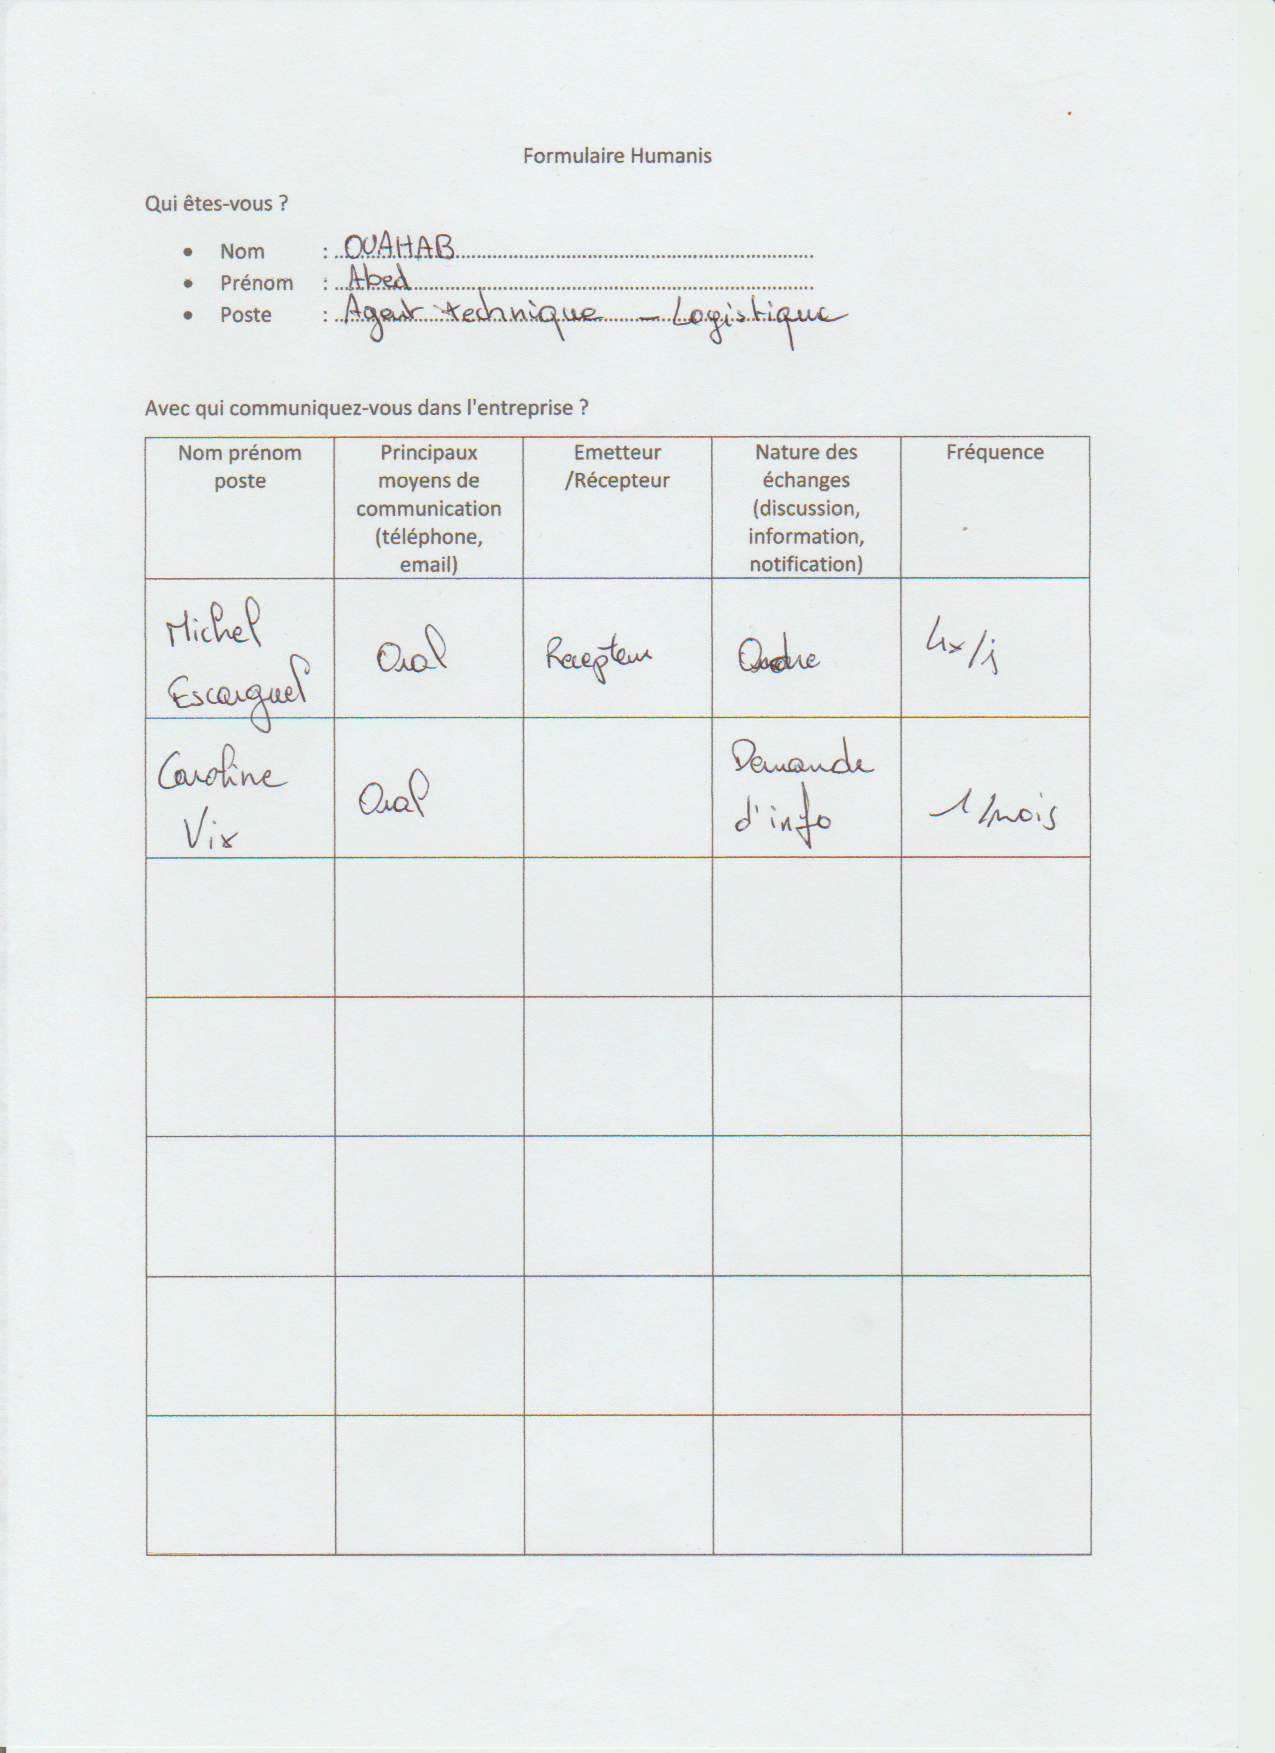 Formulaire Humanis
Qui êtes-vous ?
• Nom : OUAHAB
• Prénom : Abed
• Poste : Agent technique - Logistique
Avec qui communiquez-vous dans l'entreprise ?
Nom prénom
poste
Principaux
moyens de
communication
(téléphone,
email)
Emetteur
/Récepteur
Nature des
échanges
(discussion,
information,
notification)
Fréquence
Michel
Escarguel
Oral
Recepteur
Ordre
4x/j
Caroline
Vix
Oral
Demande
d'info
1/mois